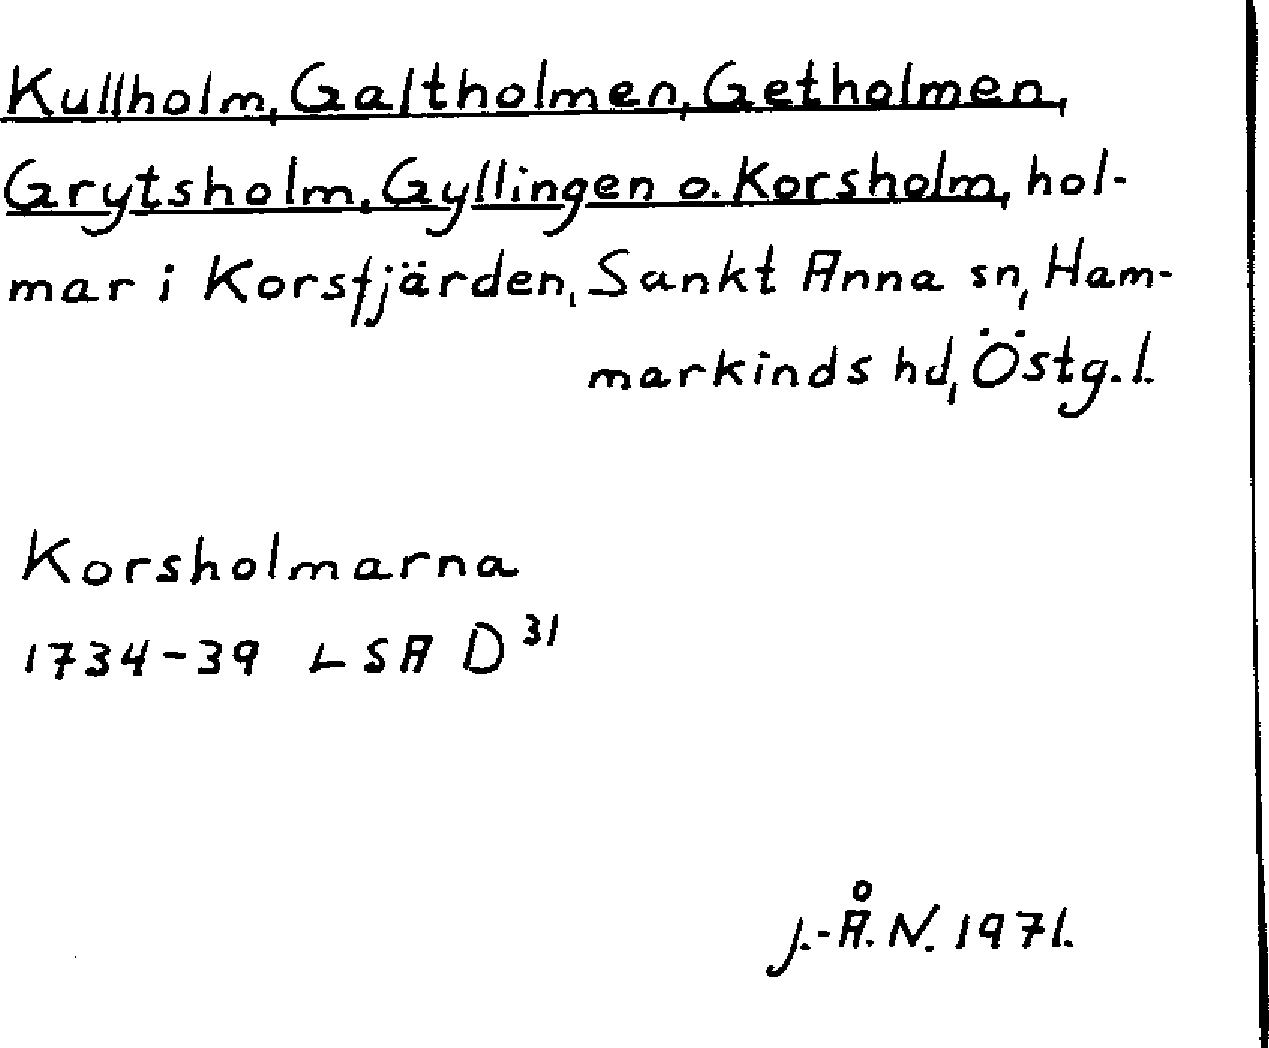 Kullholm, Galtholmen, Getholmen,
Grytsholm, Gyllingen o. Korsholm, hol-
mar i Korsfjärden, Sankt Anna sn, Ham-
markinds hd, Östg. l.
Korsholmarna
1734-39 LSA D³¹
J.-Å. N. 1971.